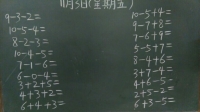 11月5日(星期五)
9-3-2=
10-5-4=
8-2-3=
10-4-5=
7-1-6=
6-0-4=
3+2+5=
4+3+2=
6+4+3=
10-5+4=
9-7+8=
7-6+9=
5-5+7=
8-4+6=
3+7-4=
4+6-5=
2+5-2=
6+3-5=